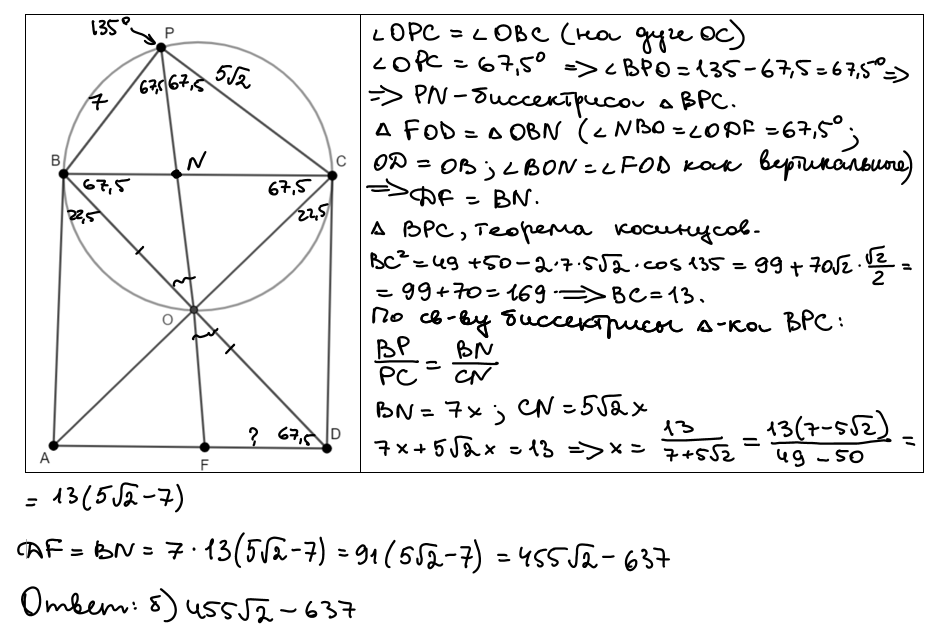 135°
P
67,5
67,5
5√2
7
B
N
C
67,5
67,5
22,5
22,5
O
?
67,5
A
F
D
∠OPC = ∠OBC (на дуге OC)
∠OPC = 67,5° => ∠BPO = 135 - 67,5 = 67,5° =>
=> PN - биссектриса △ BPC.
△ FOD = △ OBN (∠NBO = ∠ODF = 67,5°;
OD = OB; ∠BON = ∠FOD как вертикальные)
=> DF = BN.
△ BPC, теорема косинусов.
BC² = 49 + 50 - 2·7·5√2·cos 135 = 99 + 70√2 · √2/2 =
= 99 + 70 = 169 => BC = 13.
По св-ву биссектрисы △-ка BPC:
BP/PC = BN/CN
BN = 7x; CN = 5√2 x
7x + 5√2 x = 13 => x = 13/(7+5√2) = 13(7-5√2)/(49-50) =
= 13(5√2 - 7)
DF = BN = 7 · 13(5√2 - 7) = 91(5√2 - 7) = 455√2 - 637
Ответ: б) 455√2 - 637